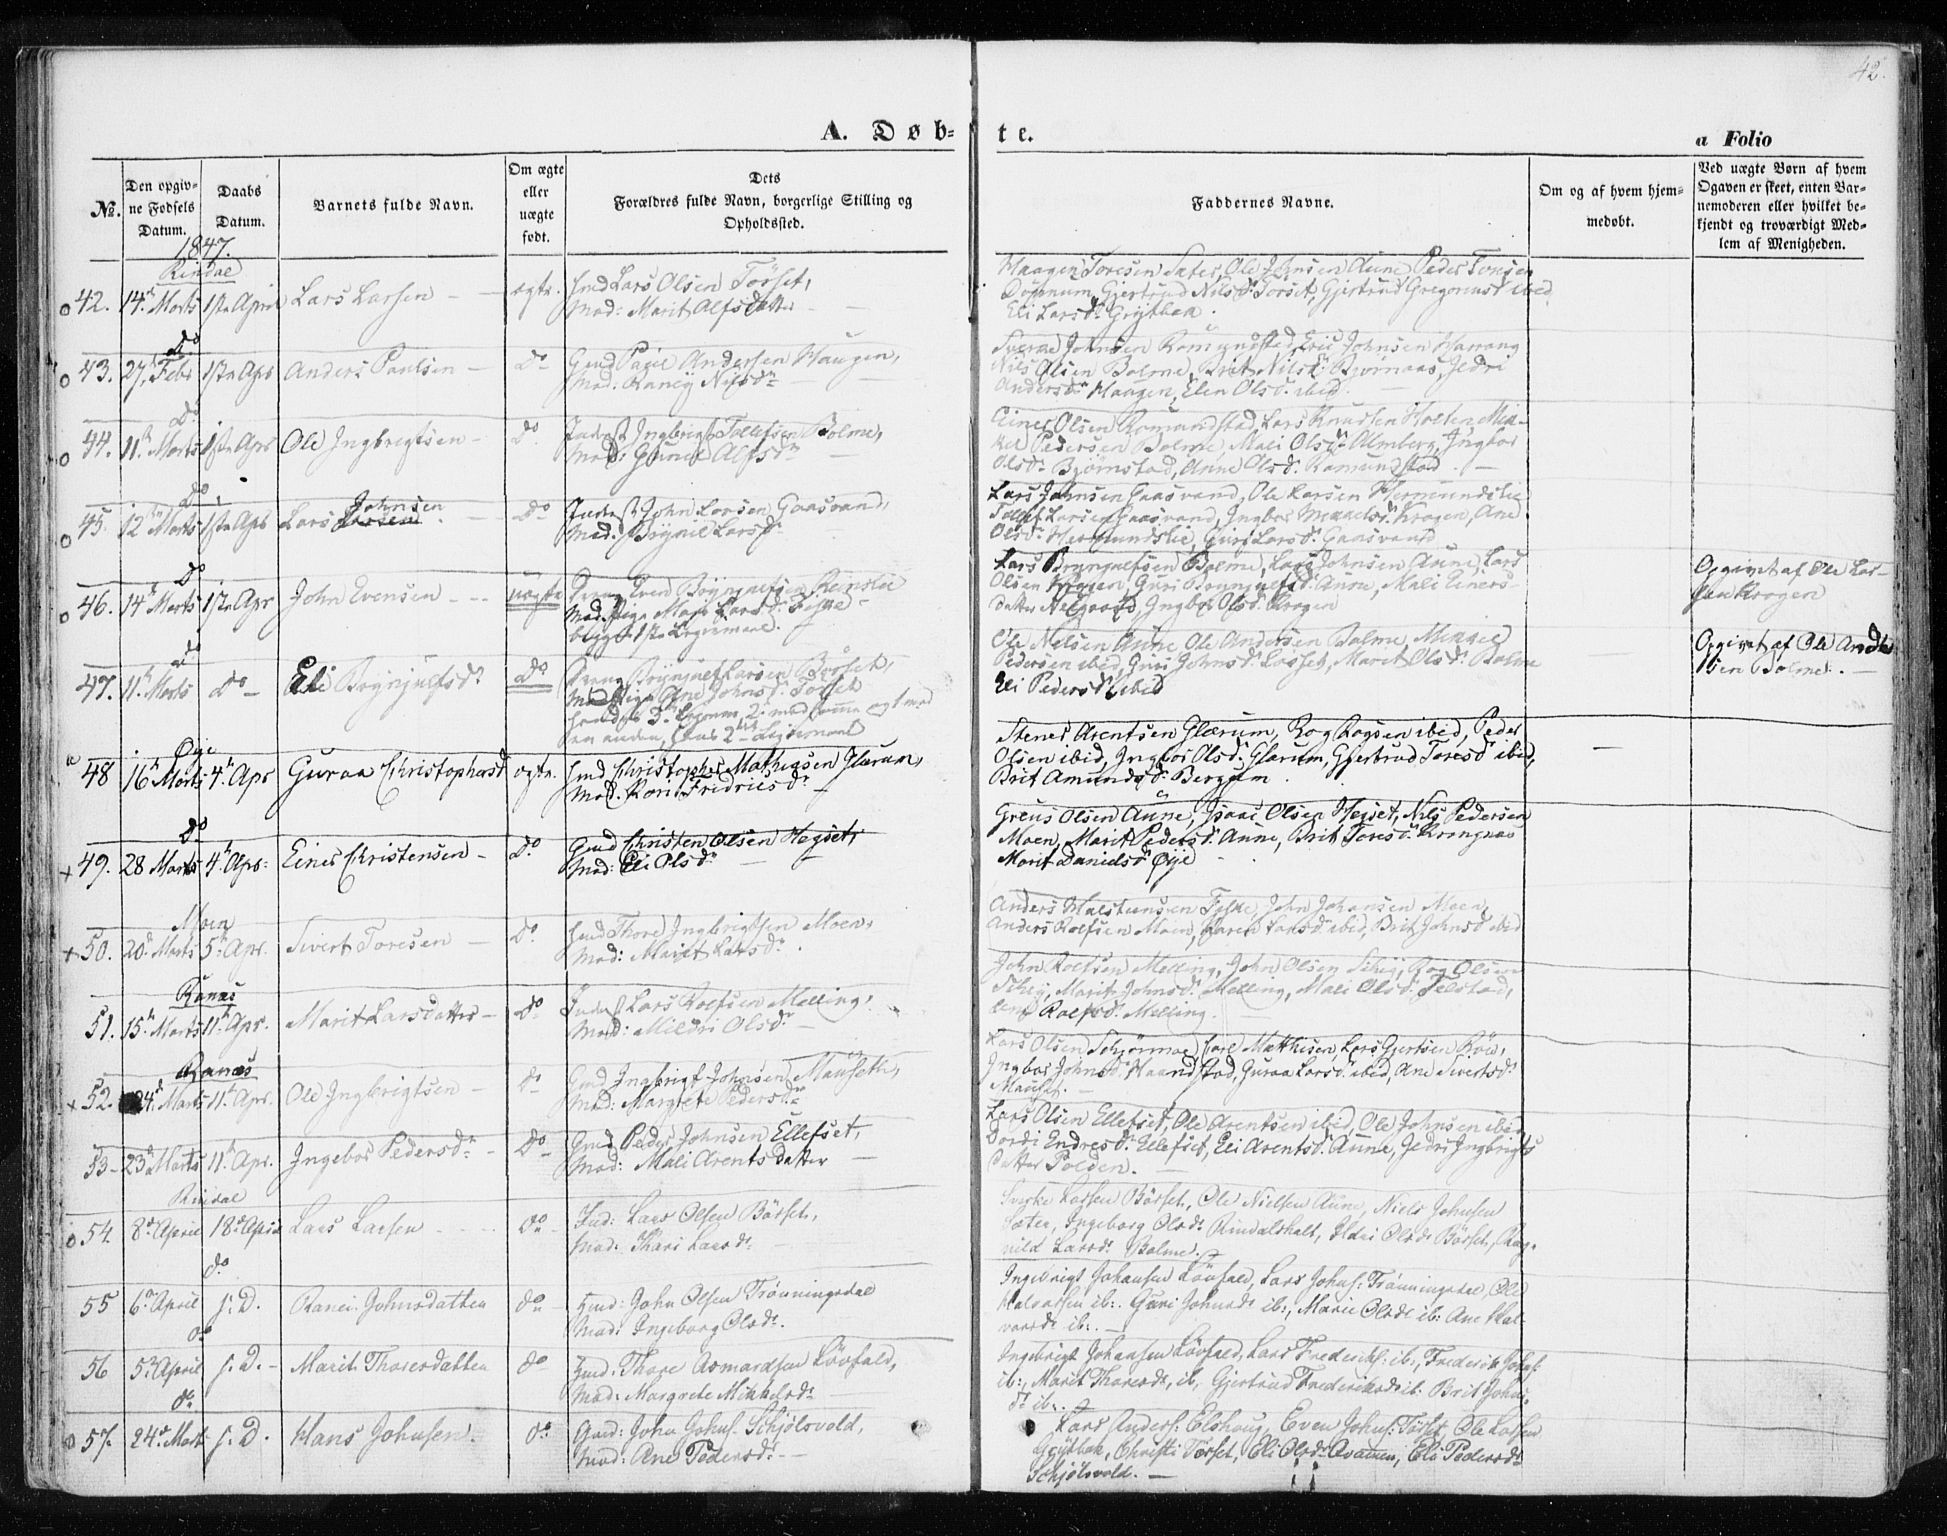 42.
A. Døb-
te.
a Folio
No.
Den opgiv-
ne Fødsels
Datum.
Daabs
Datum.
Barnets fulde Navn.
Om ægte
eller
uægte
født.
Dets
Forældres fulde Navn, borgerlige Stilling og
Opholdssted.
Faddernes Navne.
Om og af hvem hjem-
medøbt.
Ved uægte Børn af hvem
Opgaven er skeet, enten Bar-
nemoderen eller hvilket be-
kjendt og troværdigt Med-
lem af Menigheden.
1847.
Rindal
42. 14de Marts 1ste April Lars Larsen ægte. Gmd Lars Olsen Torset,
Mod: Marit Alfsdatter
Haagen Toresen Sæter, Ole Johnsen Aune, Peder Toresen
Gjertrud Nilsd. Torset, Gjertrud Gregoriusd ibid,
Eli Larsd. Grytbak.
Do
43. 27 Febr 1ste Apr Anders Paulsen Do Gmd Paul Andersen Haugen,
Mod: Raney Nilsdr
Sverke Johnsen Romundstad, Eric Johnsen
Nils Olsen Bolme, Brit Nilsd. Bjørnaas, Jedri
Andersd. Haugen, Elen Olsd. ibid
Do
44. 11te Marts 1ste Apr Ole Ingbrigtsen Do. Inderst Ingbrigt Tollefsen Bolme,
Mod: Gunil Alfsdr
Einer Olsen Romundstad, Lars Knudsen Holten, Mik-
kel Pedersen Bolme, Mali Olsd. Almberg, Ingbor
Olsd. Bjørnstad, Anne Olsd. Romundstad.
Do
45. 12te Marts 1ste Apr Lars Johnsen Do Inderst John Larsen Gaasvand,
Mod: Brynil Larsd.
Lars Johnsen Gaasvand, Ole Larsen Hermundslie
Tollef Larsen Gaasvand, Ingbor Mikkelsd. Krogen, Ane
Olsd. Hermundslie, Guri Larsd. Gaasvand
Do
46. 14de Marts 1ste Apr John Evensen uægte Dreng Even Brynjulfsen Rønslie
Mod: Pige Mali Larsd. Fiske
begges 1ste Leiermaal.
Lars Brynjulfsen Bolme, Lars Johnsen Aune, Lars
Olsen Krogen, Guri Brynjulfsd. Aune, Mali Einers-
datter Helgaard, Ingbor Olsd. Krogen
Opgivet af Ole Lar-
sen Krogen
Do
47. 11te Marts Do Eli Brynjulfsdr Do Dreng Brynjulf Larsen Børset,
Mod: Pige Ane Johnsd. Torset
hendes 3die Leierm, 2 med samme og 1 med
en anden, hans 2det Leiermaal
Ole Nilsen Aune, Ole Andersen Bolme, Mikkel
Pedersen ibid, Guri Johnsd. Losset, Marit Olsd. Bolme
Eli Pedersd. ibid
Opgivet af Ole Ander
sen Bolme.
Øye
48 16de Marts 4de Apr Guraa Christophersd ægte. Gmd Christopher Mathiasen Glærum,
Mod. Kari Fridricsdr
Stener Arentsen Glærum, Rog Rogsen ibid, Peder
Olsen ibid, Ingbor Olsd. Glærum, Gjertrud Toresd ibid,
Brit Amundsd. Bergum.
Do
49. 28 Marts 4de Apr: Einer Christensen Do. Gmd Christen Olsen Hegset,
Mod: Eli Olsdr
Greus Olsen Aune, Isaac Olsen Hegset, Nils Pedersen
Moen, Marit Pedersd. Aune, Brit Toresd. Krongnæs
Marit Danielsd. Øye
Moen
50. 20de Marts 5te Apr. Sivert Toresen Do. Gmd Thore Ingbrigtsen Moen,
Mod: Marit Larsdr.
Anders Halstensen Fiske, John Johansen Moen,
Anders Rolfsen Moen, Karen Larsd ibid, Brit Johnsd ibid
Ranæs
51. 15de Marts 11te Apr. Marit Larsdatter Do Inderst Lars Rolfsen Melling,
Mod: Mildri Olsdr
John Rolfsen Melling, John Olsen Schey, Rog Olsen
Schey, Marit Johnsd. Melling, Mali Olsd. Telstad,
Rolfsd. Melling.
Ranæs
52. 24de Marts 11te Apr. Ole Ingbrigtsen Do Gmd Ingbrigt Johnsen Mauseth,
Mod: Margrete Pedersdr
Lars Olsen Schjørmoe, Carl Mathisen, Lars Gjertsen Bøe,
Ingbor Johnsd. Haandstad, Guraa Larsd. ibid, Ane Sivertsd.
Mauset.
53 23de Marts 11te Apr. Ingebor Pedersdr Do Gmd Peder Johnsen Ellefset,
Mod: Mali Arentsdatter
Lars Olsen Ellefset, Ole Arentsen ibid, Ole Johnsen ibid,
Dordi Endresd. Ellefset, Eli Arentsd. Aune, Jedri Ingbrigts
datter Polden.
Rindal
54. 8de April 18de April Lars Larsen do Ind: Lars Olsen Børset,
Mod: Kari Larsdr
Sverke Larsen Børset, Ole Nielsen Aune, Niels Johnsen
Sæter, Ingeborg Olsdr Rindalshalt, Ildri Olsdr Børset, Rag-
nild Larsdr Bolme.
do
55 6te April s. D. Ranei Johnsdatter do Gmd: John Olsen Trønningsdal
Mod: Ingeborg Olsdr.
Ingebrigt Johansen Løvfald, Lars Johns: Trønningsdal, Ole
Halvorsen ib:. Guri Johnsdr ib:, Marie Olsdr ib: Ane Hal-
vorsdr ib:.
do
56 5te April s. D. Marit Thoresdatter do Gmd: Thore Asmundsen Løvfald,
Mod: Margrete Mikkelsdr
Ingebrigt Johansen Løvfald, Lars Frederiks: ib:, Frederik Johns:
ib:, Marit Thoresdr, ib, Gjertrud Frederiksdr ib: Brit Johns-
dr ib:.
do
57. 24de Mart s. D. Hans Johnsen. do Gmd: John Johns. Schjølsvold,
Mod: Ane Pedersdr.
Lars Anders: Elshoug, Even Johns: Torset, Ole Larsen
Grytbak, Christi Torset, Eli Olsdr, Eli Pedersdr
Schjølsvold.